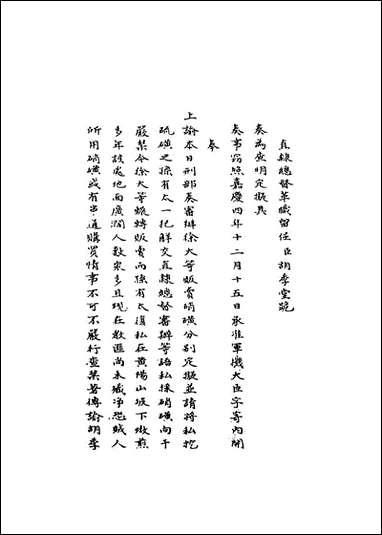 直隸總督革職留任臣胡季堂跪
奏為查明定擬具
奏事竊照嘉慶四年十二月十五日承准軍機大臣字寄內開
奉
上諭本日刑部奏審辦徐大等販賣硝磺分別定擬並請將私挖
硫磺之孫有太一犯解交直隸總督審辦等語私採硝磺向干
嚴禁今徐大等輒轉販賣而孫有太復私在黃陽山坡下墩煎
多年該處地面廣濶人數眾多且現在教匪尚未殲净恐賊人
所用硝磺或有串通購買情事不可不嚴行查禁著傳諭胡季